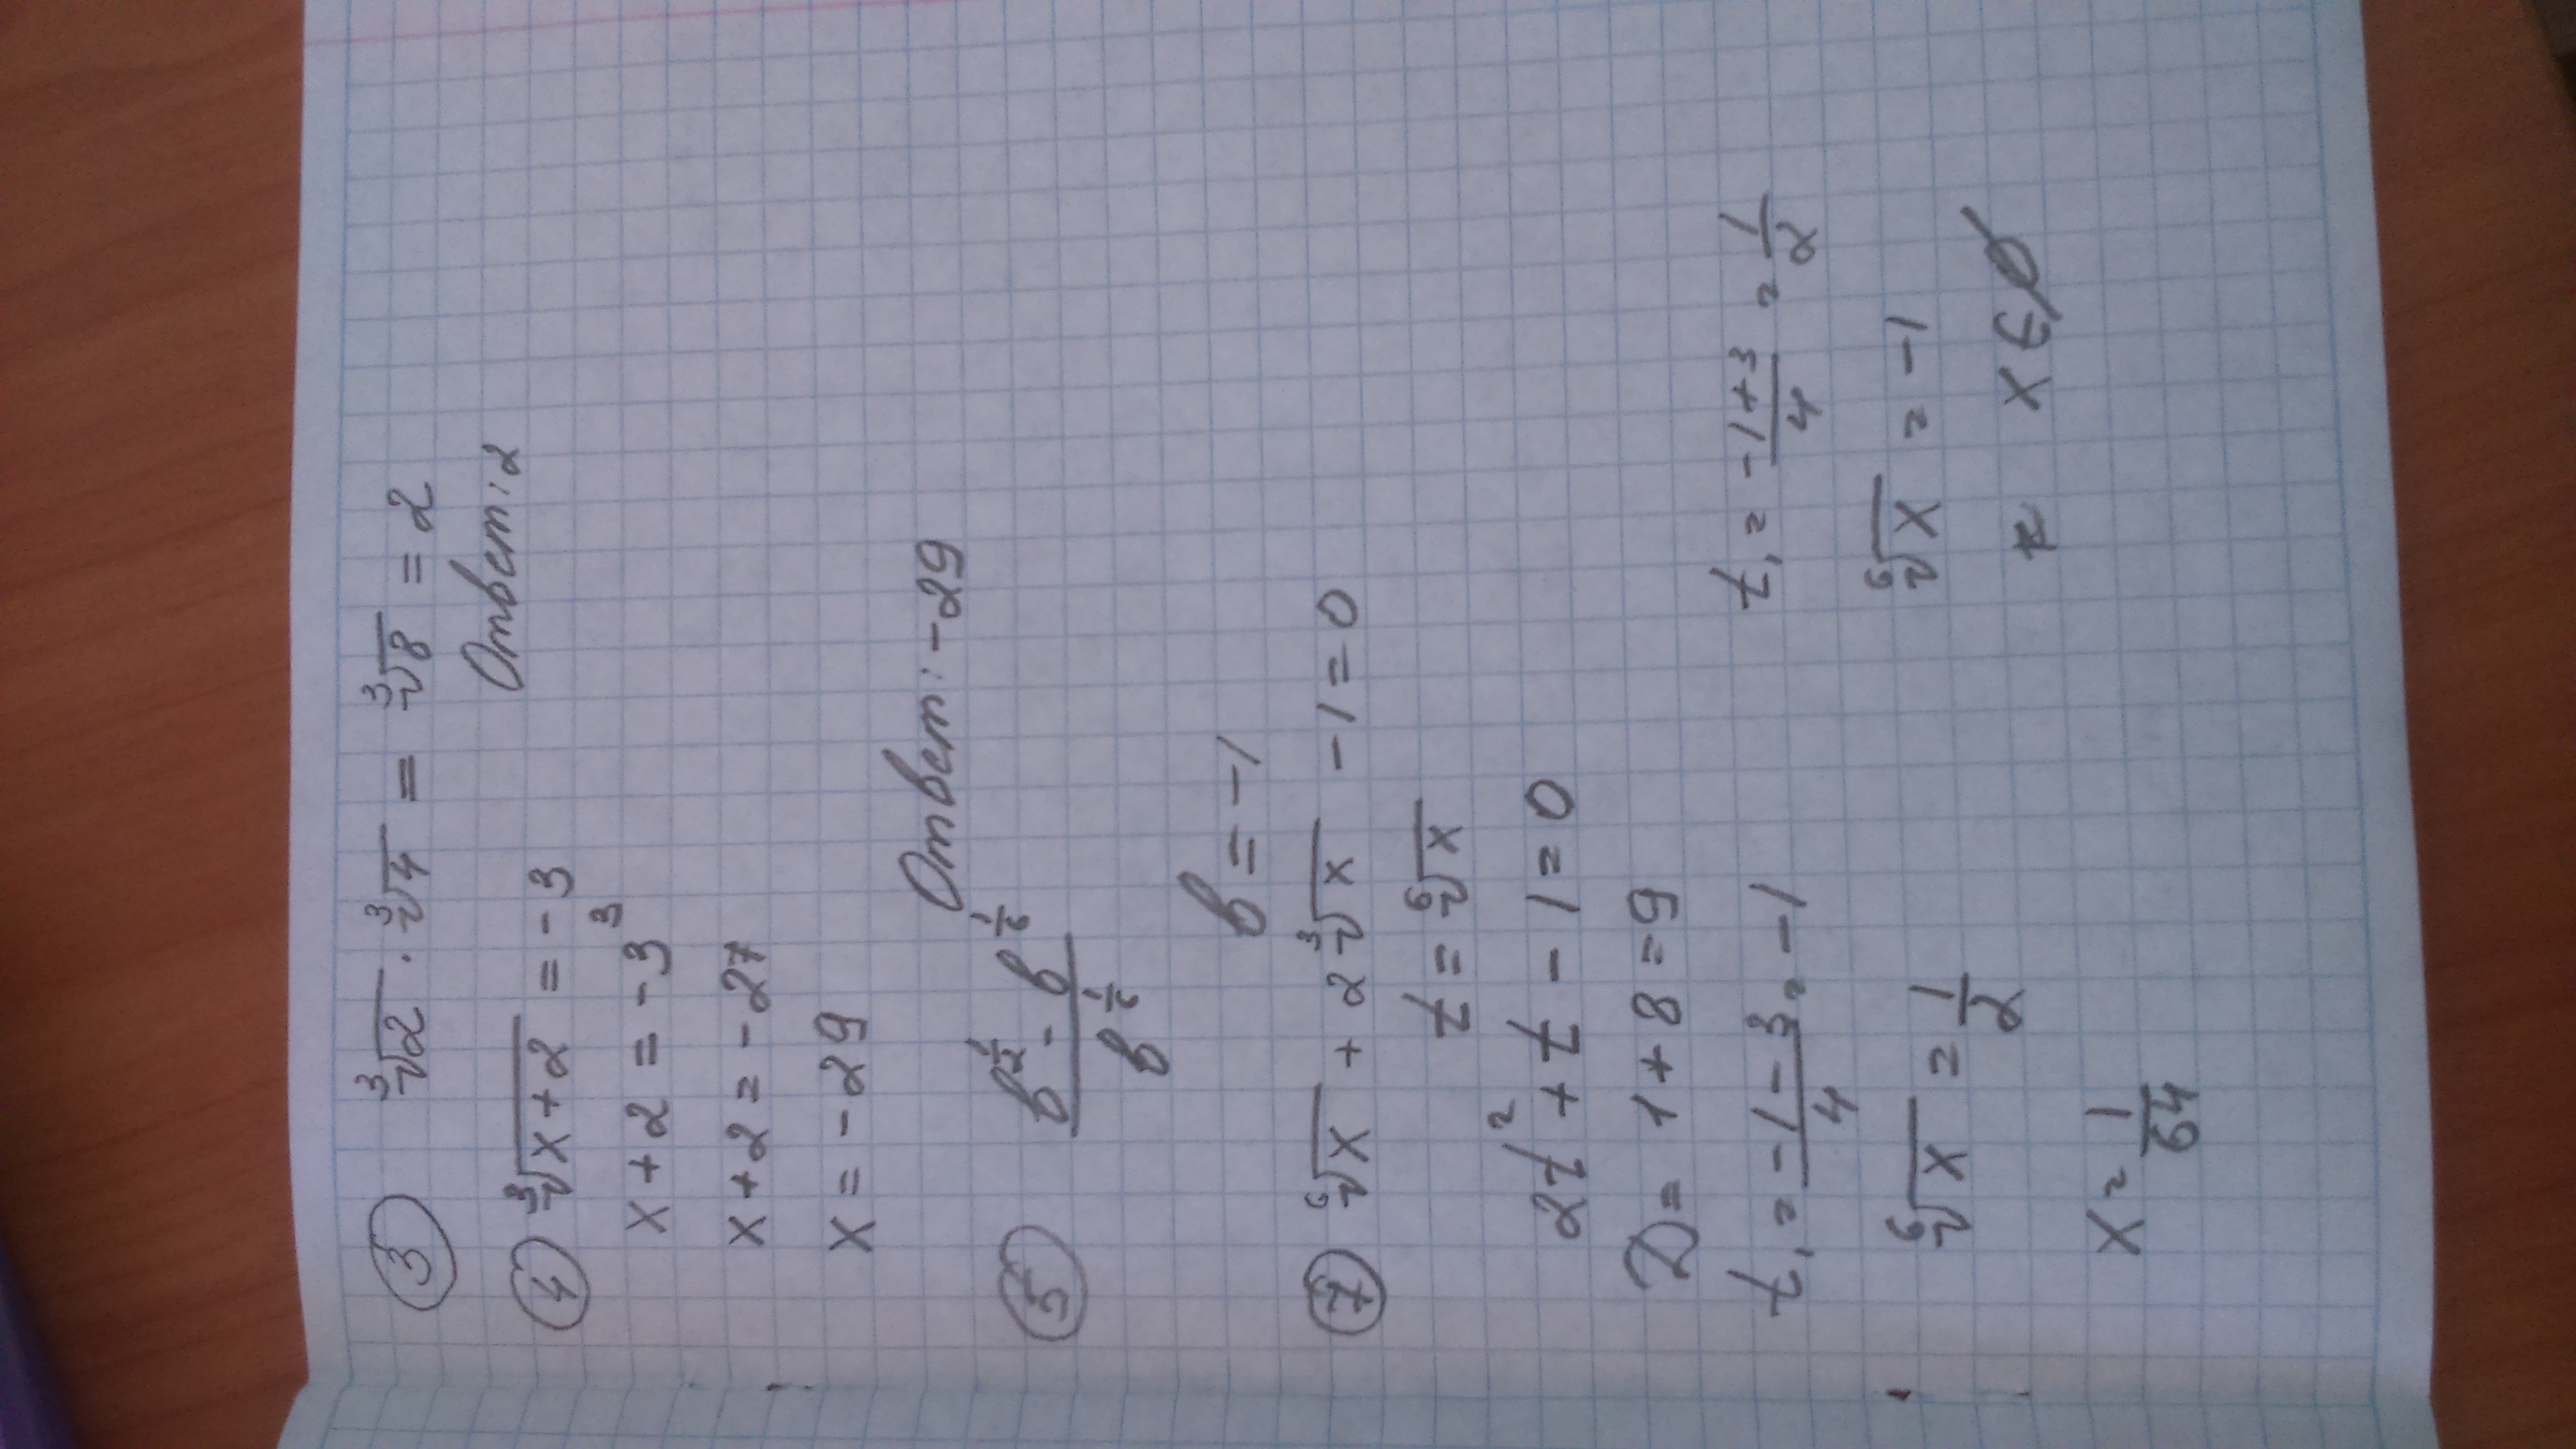 ③ ³√2 · ³√4 = ³√8 = 2
Ответ: 2
④ ³√(x+2) = -3
x+2 = -3³
x+2 = -27
x = -29
Ответ: -29
⑤ (b^(1/2) - b
b = -1
⑦ ⁶√x + 2 ³√x - 1 = 0
t = ⁶√x
2t² + t - 1 = 0
D = 1 + 8 = 9
t₁ = (-1-3)/4 = -1 t₁ = (-1+3)/4 = 1/2
⁶√x = 1/2 ⁶√x = -1
x ∈ ∅
x = 1/64